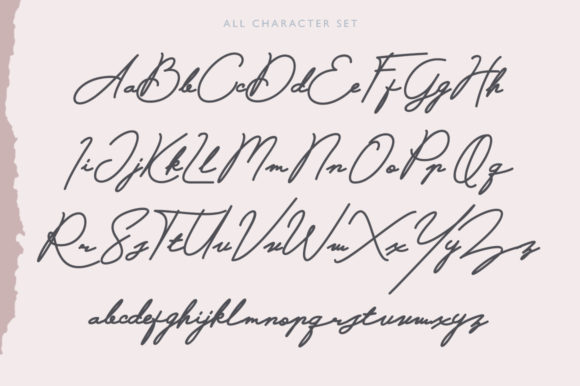 ALL CHARACTER SET
AaBbCcDdEeFfGgHh
IiJjKkLlMmNnOoPpQq
RrSsTtUuVvWwXxYyZz
abcdefghijklmnopqrstuvwxyz